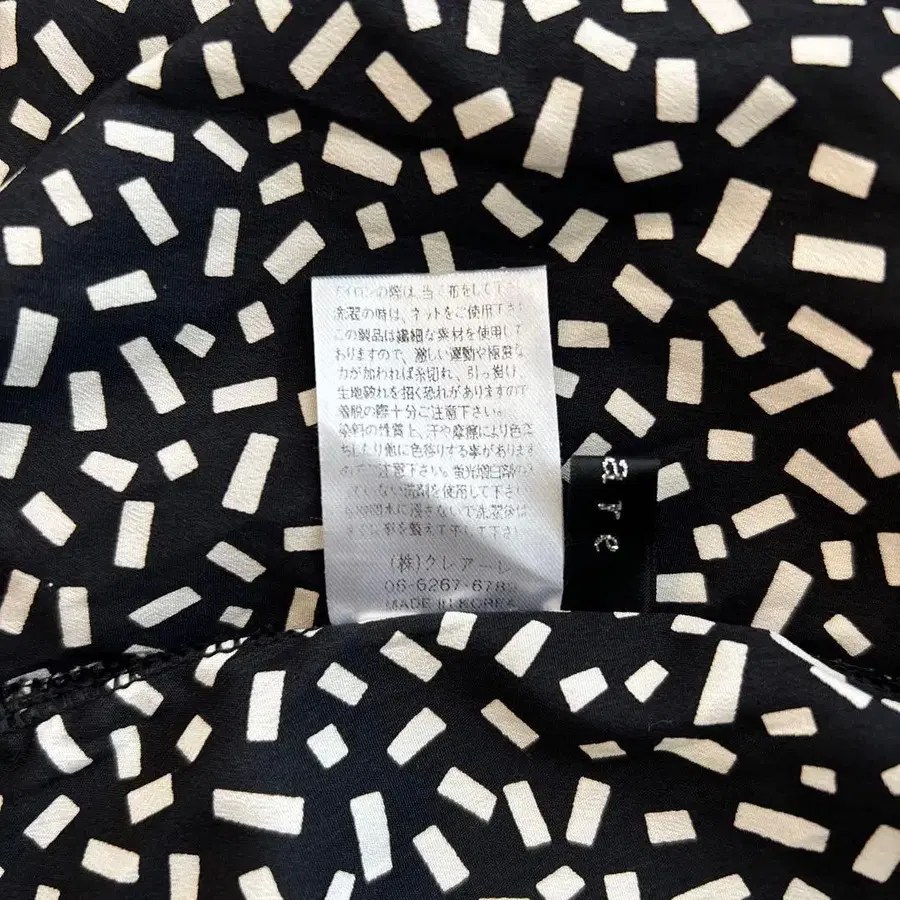 アイロンの際は、当て布をして下さ
洗濯の時は、ネットをご使用下さ
この製品は繊細な素材を使用して
おりますので、激しい運動や極度な
力が加われば糸切れ、引っ掛け、
生地破れを招く恐れがありますので
着脱の際十分ご注意下さい。
染料の性質上、汗や摩擦により色
ちしたり他に色移りする事があります
のでご注意下さい。蛍光増白剤の入
っていない洗剤を使用して下さい
水に浸さないで洗濯後は
形を整えて干して下さい
(株)クレアーレ
06-6267-6789
MADE IN KOREA
are